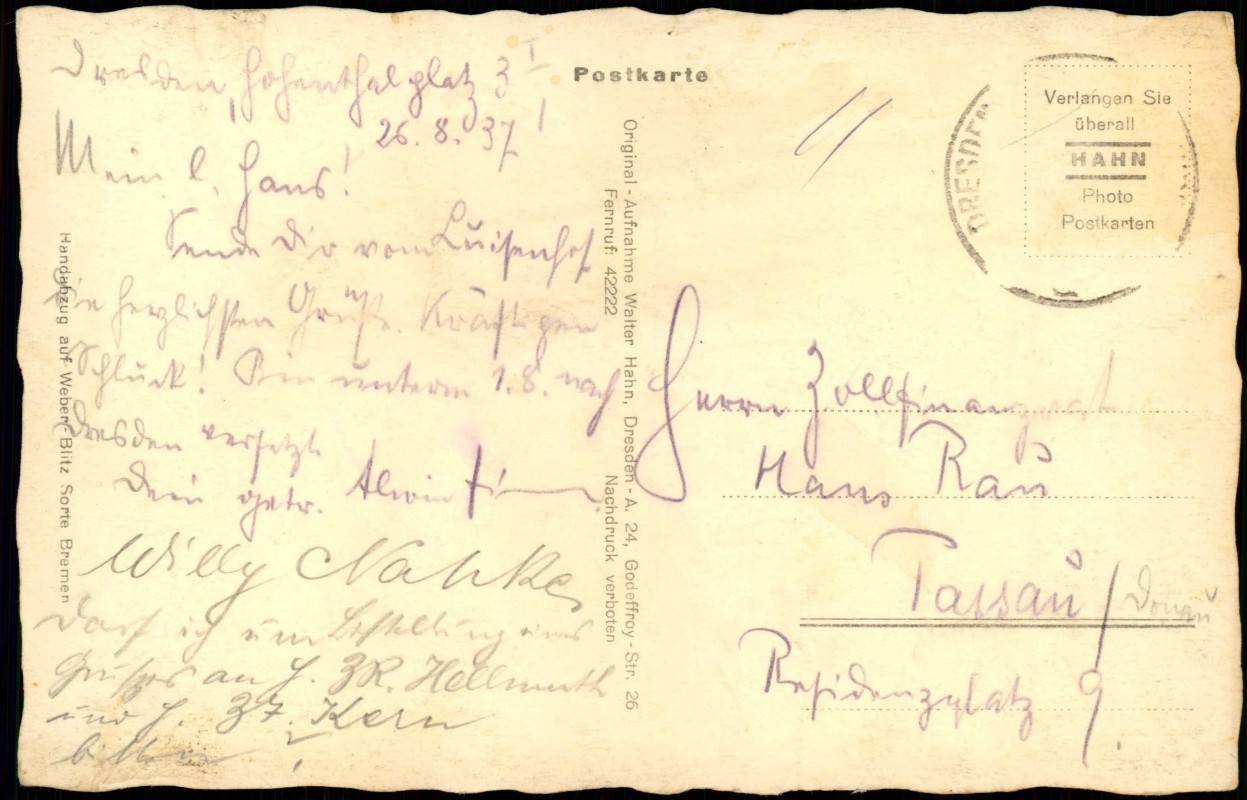 Dresden, Hohenthalplatz 3 I
26.8.37!
Mein l. Hans!
Sende Dir vom Luisenhof
die herzlichsten Grüße. Kräftigen
Schluck! Bin unterm 1.8. nach
Dresden versetzt
Dein getr. Alwin
Willy
Darf ich um Bestellung eines
Grußes an H. ZR. Hellmuth
und H. Kern
bitten!
Handabzug auf Weber-Blitz Sorte Bremen
Postkarte
Original-Aufnahme Walter Hahn, Dresden-A. 24, Godeffroy-Str. 26
Fernruf: 42222 Nachdruck verboten
DRESDEN
Verlangen Sie
überall
HAHN
Photo
Postkarten
Herrn Zollfinanzrat
Hans Rau
Passau / Donau
Residenzplatz 9.